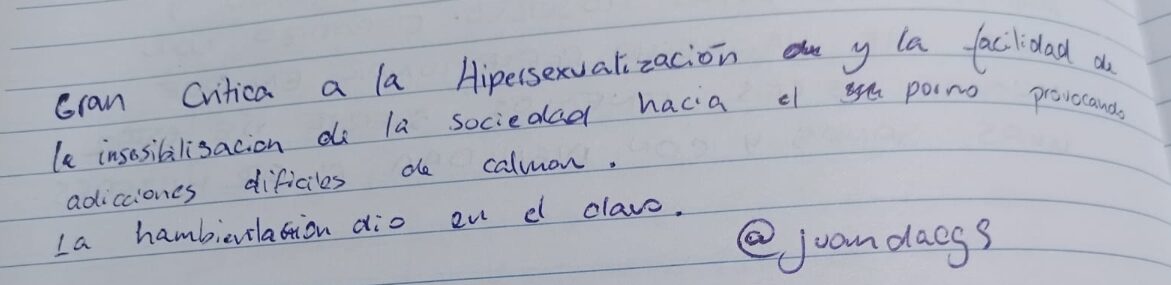 Gran Critica a la Hipersexualización y la facilidad de
la insesibilisacion de la sociedad hacia el porno provocando
adicciones dificiles de calmar.
La hambientación dio en el clavo.
@juandacgs